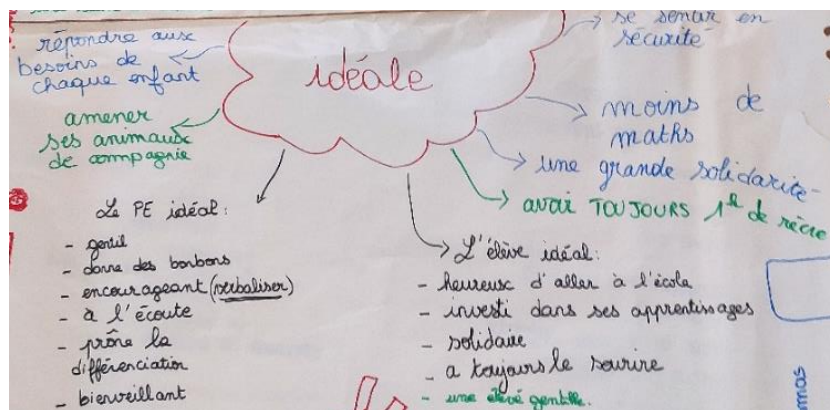 répondre aux
besoins de
chaque enfant
amener
ses animaux
de compagnie
idéale
se sentir en
sécurité
moins de
maths
une grande solidarité
avoir TOUJOURS 1h de récré
Le PE idéal:
- gentil
- donne des bonbons
- encourageant (verbaliser)
- à l'écoute
- prône la
différenciation
- bienveillant
L'élève idéal:
- heureux d'aller à l'école
- investi dans ses apprentissages
- solidaire
- a toujours le sourire
- une élève gentille.